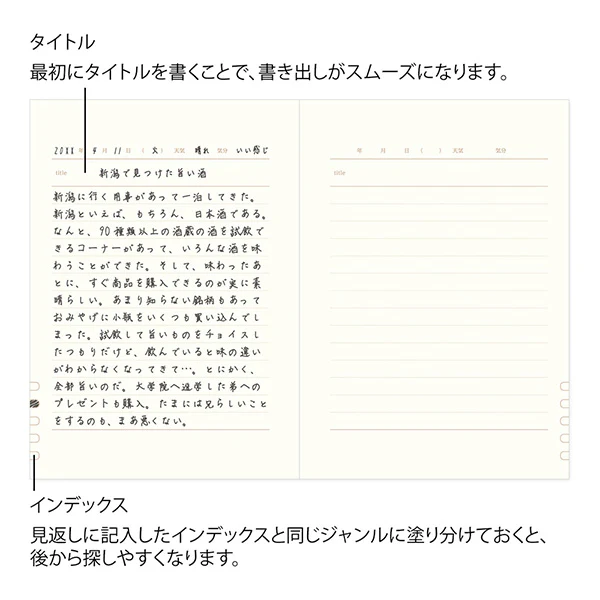 タイトル
最初にタイトルを書くことで、書き出しがスムーズになります。
2018 年 9 月 11 日 (火) 天気 晴れ 気分 いい感じ
title 新潟で見つけた旨い酒
新潟に行く用事があって一泊してきた。
新潟といえば、もちろん、日本酒である。
なんと、90種類以上の酒蔵の酒を試飲で
きるコーナーがあって、いろんな酒を味
わうことができた。そして、味わったあ
とに、すぐ商品を購入できるのが実に素
晴らしい。あまり知らない銘柄もあって
おみやげに小瓶をいくつも買い込んでし
まった。試飲して旨いものをチョイスし
たつもりだけど、飲んでいると味の違い
がわからなくなってきて…。とにかく、
全部旨いのだ。大学院へ進学した弟への
プレゼントも購入。たまには兄らしいこと
をするのも、まあ悪くない。
年 月 日 ( ) 天気 気分
title
インデックス
見返しに記入したインデックスと同じジャンルに塗り分けておくと、
後から探しやすくなります。